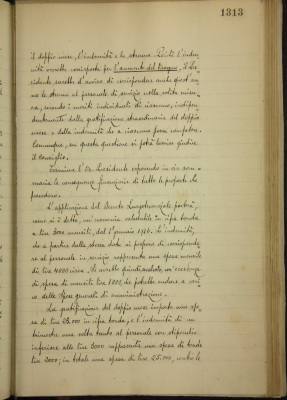 1313
il doppio mese, l'indennità e la strenna. Poiché l'inden-
nità avrebbe corrisposto per l'aumento del bisogno, il Pre-
sidente sarebbe d'avviso di corrispondere anche quest'an-
no la strenna al personale di servizio nella solita misu-
ra, secondo i meriti individuali di ciascuno, indipen-
dentemente dalla gratificazione straordinaria del doppio
mese e dalla indennità che a ciascuno fosse
Comunque, su questa questione si potrà
il Consiglio.
Termina l'On. Presidente esponendo in via som-
maria le conseguenze finanziarie di tutte le proposte che
precedono.
L'applicazione del Decreto Luogotenenziale porterà,
come si è detto, un'economia valutabile in cifra tonda
a lire 3000 mensili, dal 1º gennaio 1916. L'indennità,
che a partire dalla stessa data si propone di corrisponde-
re al personale in servizio rappresenta una spesa mensile
di lire 4000 circa. Si avrebbe quindi un'eccedenza
di spesa di mensili lire 1000, che potrebbe andare a cari-
co delle Spese generali di amministrazione.
La gratificazione del doppio mese importa una spe-
sa di lire 23.000 in cifra tonda; e l'indennità di un
bimestre una volta tanto al personale con stipendio
inferiore alle lire 3000 rappresenta una spesa di
lire 2000; in totale una spesa di lire 25.000, contro le